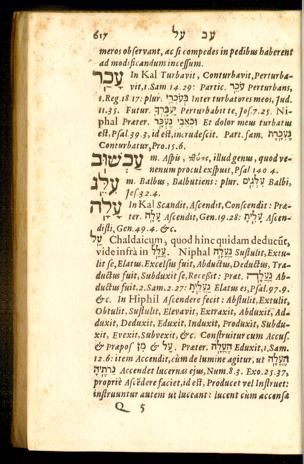 617 עכ על
meros observant, ac si compedes in pedibus haberent
ad modificandum incessum.
עָכַר In Kal Turbavit, Conturbavit, Perturba-
vit, 1. Sam 14.29: Partic. עֹכֵר Perturbans,
1. Reg. 18 17: plur. בְּעֹכְרָי Inter turbatores meos, Jud.
11.35. Futur. יַעְכֳּרְךָ Perturbabit te, Jos 7.25. Ni-
phal Præter. וּכְאֵבִי נֶעְכָּר Et dolor meus turbatus
est, Psal. 39.3, id est, incrudescit. Part. fœm. נֶעְכֶּרֶת
Conturbatur, Pro. 15.6.
עַכְשׁוּב m. Aspis, illud genus, quod ve-
nenum procul exspuit, Psal 140 4.
עִלֵּג m. Balbus, Balbutiens: plur. עִלְּגִים Balbi,
Jes. 32.4.
עָלָה In Kal Scandit, Ascendit, Conscendit: Præ-
ter. עָלָה Ascendit, Gen. 19.28: עָלִיתָ Ascen-
disti, Gen. 49.4. &c.
עַל Chaldaicum, quod hinc quidam deducũt,
vide infrà in עלל. Niphal נַעֲלָה Sustulit, Extu-
lit se, Elatus, Excelsus fuit, Abductus, Deductus, Tra-
ductus fuit, Subduxit se, Recessit: Præt. נַעֲלָה Ab-
ductus fuit, 2. Sam. 2.27: נַעֲלֵיתָ Elatus es, Psal. 97.9.
&c. In Hiphil Ascendere fecit: Abstulit, Extulit,
Obtulit, Sustulit, Elevavit, Extraxit, Abduxit, Ad-
duxit, Deduxit, Eduxit, Induxit, Produxit, Subdu-
xit, Evexit, Subvexit, &c. Construitur cum Accus.
& Præpos עַל & מִן. Præter. הֶעֱלָה Eduxit, 1. Sam.
12.6: item Accendit, cùm de lumine agitur, ut הֶעֱלָה
נֵרֹתֶיהָ Accendet lucernas ejus, Num. 8.3. Exo. 25.37,
propriè Ascẽdere faciet, id est, Producet vel Instruet:
instruuntur autem ut luceant: lucent cùm accensæ
Q 5